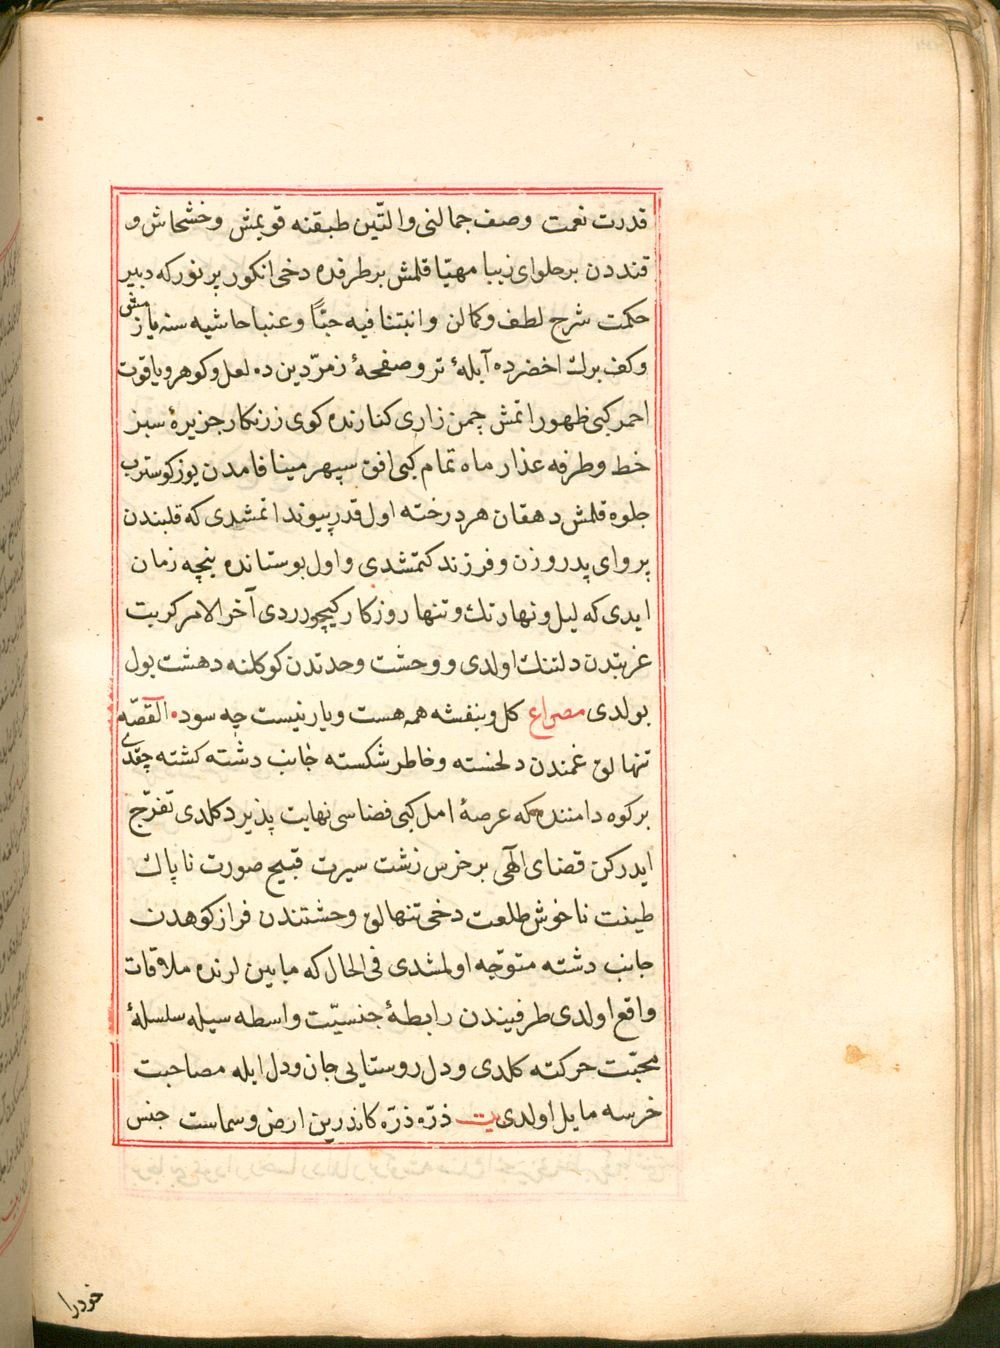 قدرت نعمت وصف جمالنی والتّین طبقنه قویمش وخشخاش و
قنددن برحلوای زیبا مهیّا قلمش برطرفده دخی انکور پرنورکه دبیر
حکمت شرح لطف وکمالن وانبتنا فیه حبّاً وعنبا حاشیه سنه یازمش
وکف برك اخضرده آبلۀ تر وصفحۀ زمرّدین ده لعل وکوهر ویاقوت
احمر کبی ظهور اتمش چمن زاری کنارنده کوی زرنکار جزیرۀ سبز
خط وطرفه عذار ماه تمام کبی افق سپهر مینا فامدن یوز کوسترب
جلوه قلمش دهقان هر درخته اول قدر پیوند اتمشدی که قلبندن
پروای پدر وزن وفرزند کتمشدی واول بوستانده نیچه زمان
ایدی که لیل ونهار تك وتنها روزکار کیچوردی آخر الامر کربت
غربتدن دلتنك اولدی ووحشت وحدتدن کوکلنه دهشت یول
بولدی مصراع کل وبنفشه همه هست ویار نیست چه سود القصّه
تنهالق غمندن دلخسته وخاطر شکسته جانب دشته کشته چقدی
برکوه دامننده که عرصۀ امل کبی فضاسی نهایت پذیر دکلدی تفرّج
ایدرکن قضای الٓهی برخرس زشت سیرت قبیح صورت ناپاك
طینت ناخوش طلعت دخی تنهالق وحشتندن فراز کوهدن
جانب دشته متوجّه اولمشدی فی الحال که مابین لرنده ملاقات
واقع اولدی طرفیندن رابطۀ جنسیّت واسطه سیله سلسلۀ
محبّت حرکته کلدی ودل روستایی جان ودل ایله مصاحبت
خرسه مایل اولدی بیت ذرّه ذرّه کاندرین ارض وسماست جنس
خودرا